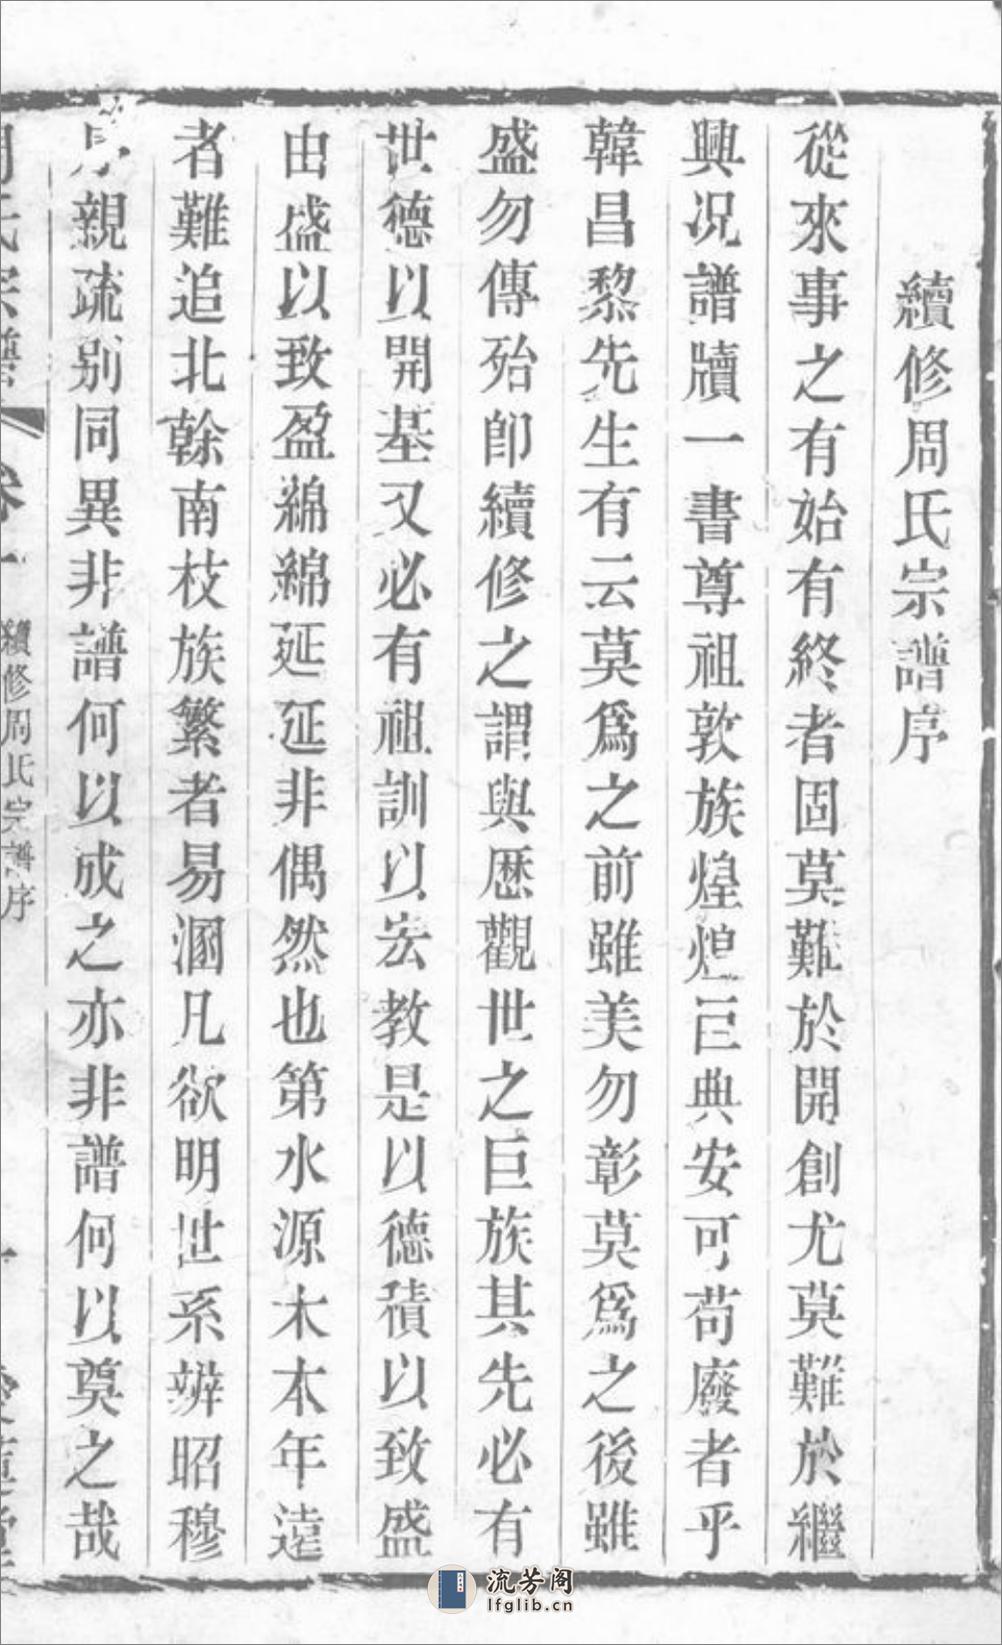 續修周氏宗譜序
從來事之有始有終者固莫難於開創尤莫難於繼
興况譜牘一書尊祖敦族煌煌巨典安可苟廢者乎
韓昌黎先生有云莫爲之前雖美勿彰莫爲之後雖
盛勿傳殆卽續修之謂與歷觀世之巨族其先必有
世德以開基又必有祖訓以宏教是以德積以致盛
由盛以致盈綿綿延延非偶然也第水源木本年遠
者難追北榦南枝族繁者易溷凡欲明世系辨昭穆
親疏别同異非譜何以成之亦非譜何以奠之哉
周氏宗譜
卷一
續修周氏宗譜序
一
流芳阁
lfglib.cn